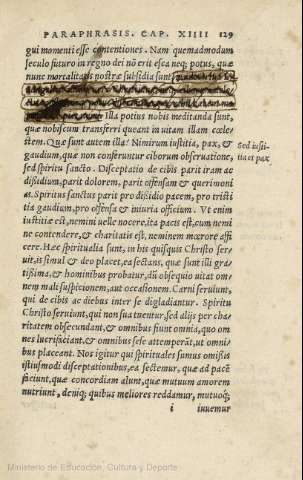 PARAPHRASIS. CAP. XIIII 129
gui momenti esse contentiones. Nam quemadmodum
seculo futuro in regno dei nō erit esca neq; potus, quæ
nunc mortalitatis nostræ subsidia sunt
Illa potius nobis meditanda sunt,
quæ nobiscum transferri queant in vitam illam cœle
stem. Quæ sunt autem illa? Nimirum iustitia, pax, &
Sed iusti
gaudium, quæ non conferuntur ciborum obseruatione,
tia et pax
sed spiritu sancto. Disceptatio de cibis parit iram ac
dissidium, parit dolorem, parit offensam & querimoni
as. Spiritus sanctus parit pro dissidio pacem, pro tristi
tia gaudium, pro offensa & iniuria officium. Vt enim
iustitiæ est, nemini uelle nocere, ita pacis est, cum nemi
ne contendere, & charitatis est, neminem mœrore affi
cere. Hæc spiritualia sunt, in his quisquis Christo ser
uit, is simul & deo placet, ea sectans, quæ sunt illi gra
tissima, & hominibus probatur, dū obsequio uitat om
nem mali suspicionem, aut occasionem. Carni seruiunt,
qui de cibis ac diebus inter se digladiantur. Spiritu
Christo seruiunt, qui non sua tuentur, sed alijs per cha
ritatem obsecundant, & omnibus fiunt omnia, quo om
nes lucrifaciant, & omnibus sese attemperāt, ut omni
bus placeant. Nos igitur qui spirituales sumus omissis
istiusmodi disceptationibus, ea sectemur, quæ ad pacē
faciunt, quæ concordiam alunt, quæ mutuum amorem
nutriunt, deniq; quibus meliores reddamur, mutuoq;
i iuuemur
Ministerio de Educación, Cultura y Deporte